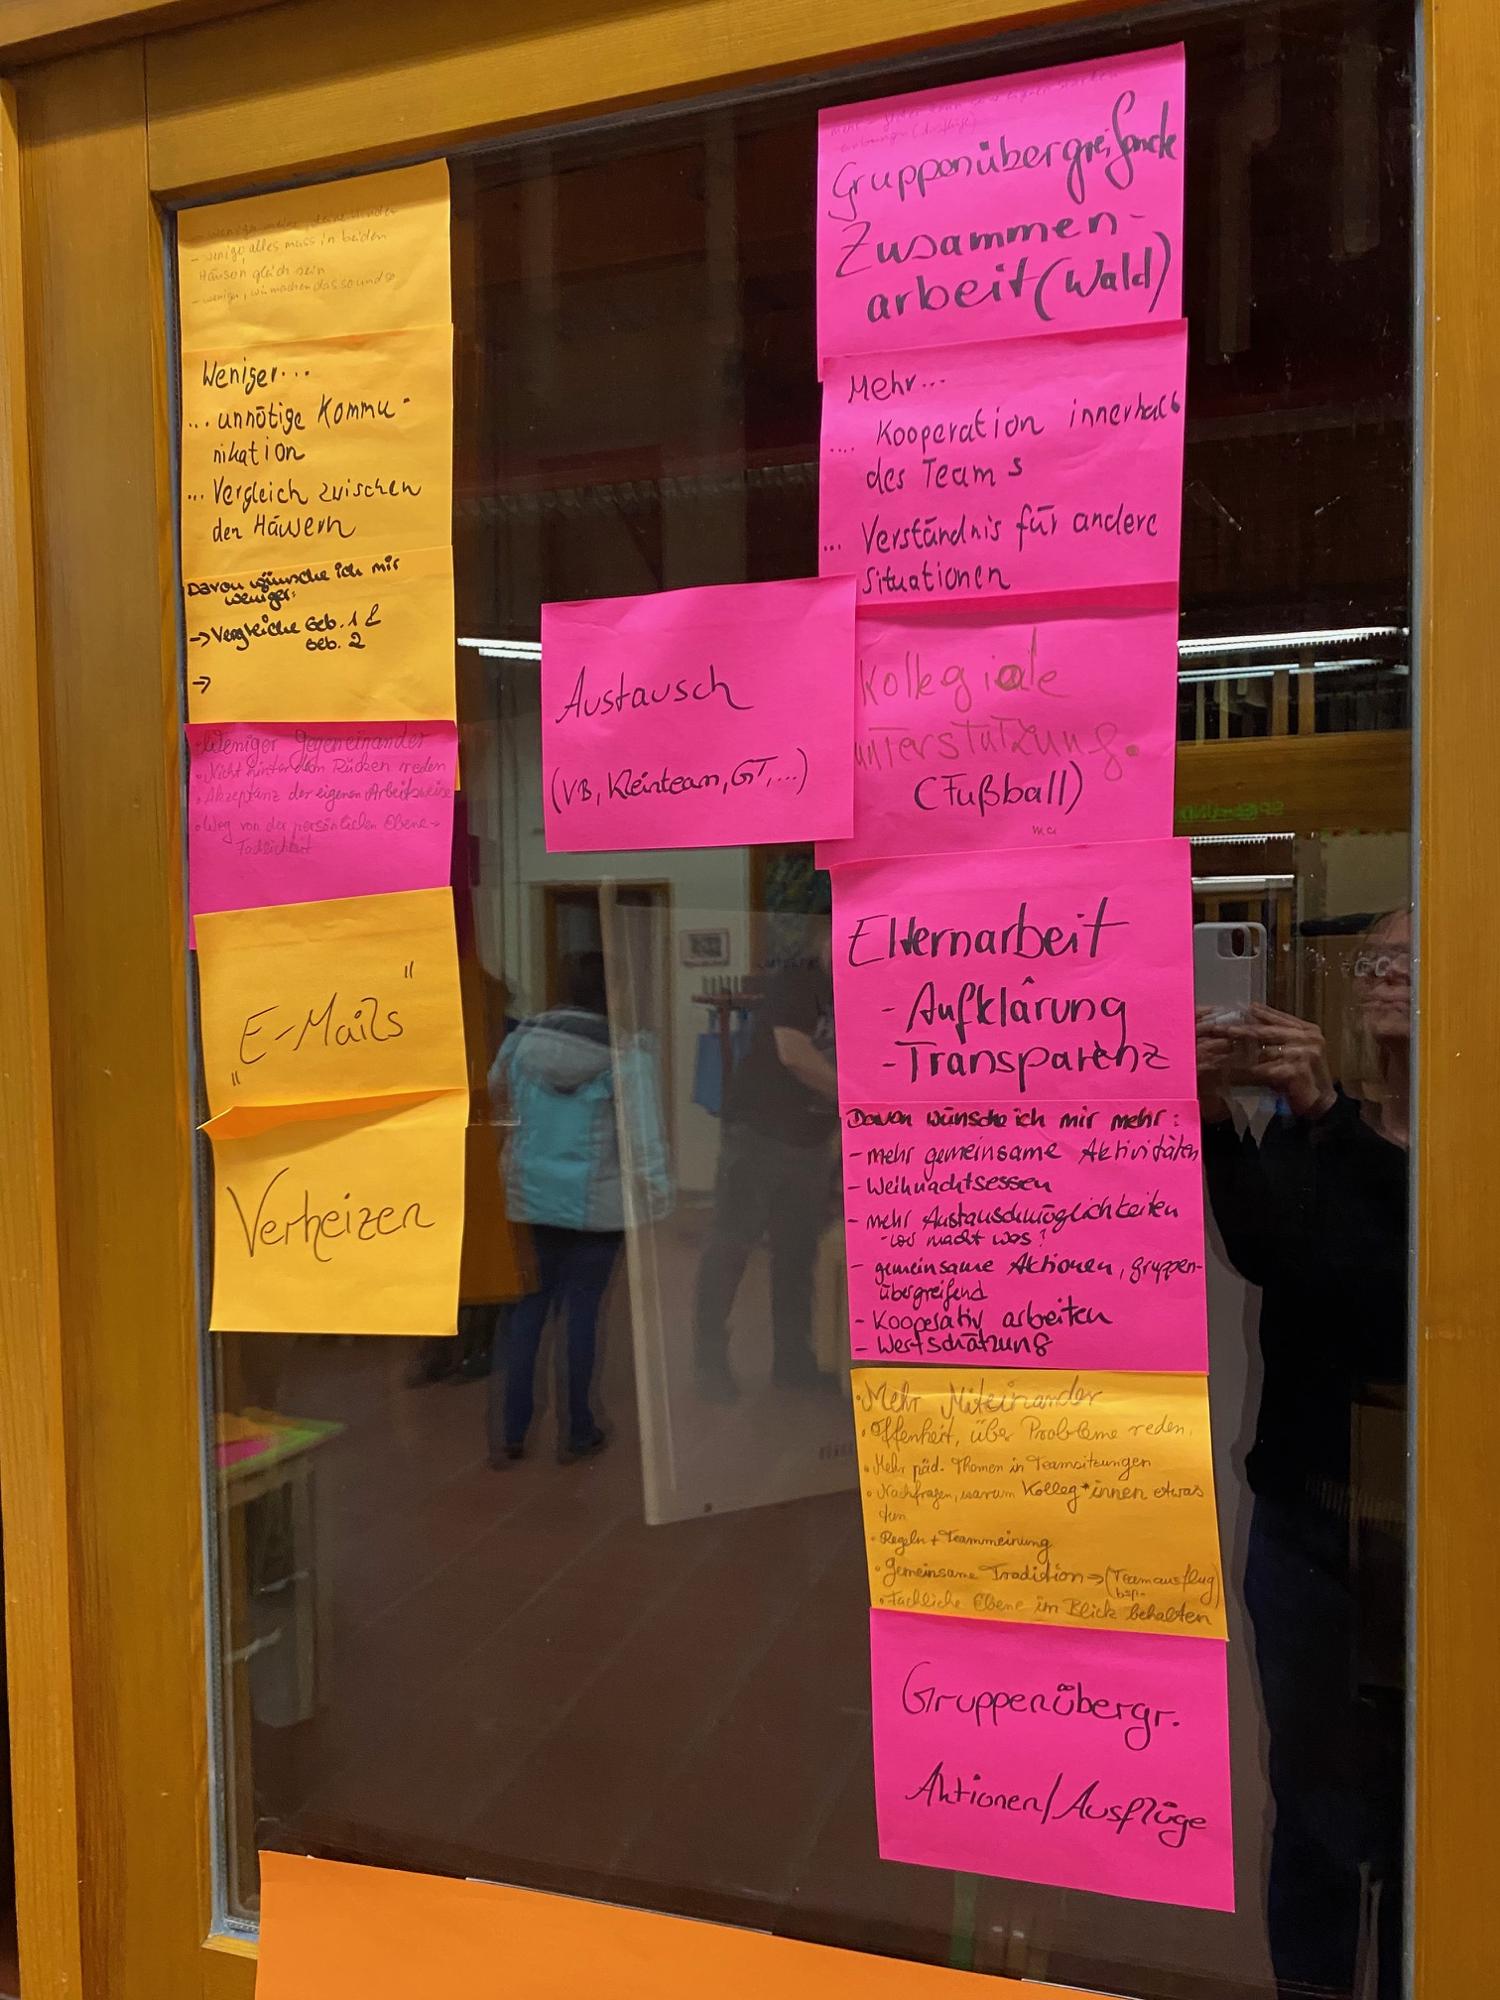 - weniger meine, deine Kinder
- weniger alles muss in beiden
Häusern gleich sein
- weniger, wir machen das so und so
Weniger...
... unnötige Kommu-
nikation
... Vergleich zwischen
den Häusern
Davon wünsche ich mir
weniger:
→ Vergleiche Geb. 1 &
Geb. 2
→
• Weniger Gegeneinander
• Nicht hinter dem Rücken reden
• Akzeptanz der eigenen Arbeitsweise
• Weg von der persönlichen Ebene →
Fachlichkeit
"E-Mails"
Verheizen
Austausch
(VB, Kleinteam, GT, ...)
Gruppenübergreifende
Zusammen-
arbeit (Wald)
Mehr...
.... Kooperation innerhalb
des Teams
... Verständnis für andere
Situationen
Kollegiale
unterstützung.
(Fußball)
Elternarbeit
- Aufklärung
- Transparenz
Davon wünsche ich mir mehr:
- mehr gemeinsame Aktivitäten
- Weihnachtsessen
- mehr Austauschmöglichkeiten
- wer macht was?
- gemeinsame Aktionen, gruppen-
übergreifend
- Kooperativ arbeiten
- Wertschätzung
• Mehr Miteinander
• Offenheit, über Probleme reden.
• Mehr päd. Themen in Teamsitzungen
• Nachfragen, warum Kolleg*innen etwas
tun
• Regeln + Teammeinung
• Gemeinsame Tradition → (Teamausflug)
bsp.
• Fachliche Ebene im Blick behalten
Gruppenübergr.
Aktionen/Ausflüge